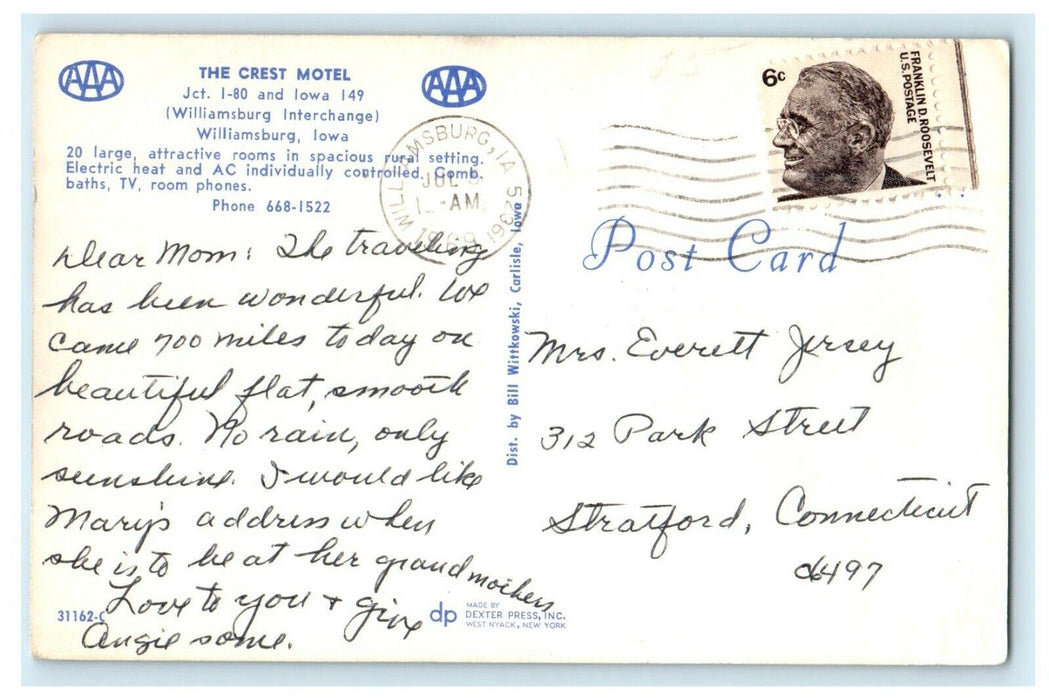 AAA
THE CREST MOTEL
AAA
Jct. I-80 and Iowa 149
(Williamsburg Interchange)
Williamsburg, Iowa
20 large, attractive rooms in spacious rural setting.
Electric heat and AC individually controlled. Comb.
baths, TV, room phones.
Phone 668-1522
WILLIAMSBURG, IA 52361
JUL
AM
Dear Mom: The traveling
has been wonderful. We
came 700 miles today on
beautiful flat, smooth
roads. No rain, only
sunshine. I would like
Mary's address when
she is to be at her grandmothers
Love to you + give
Angie some.
31162-C
dp
MADE BY
DEXTER PRESS, INC.
WEST NYACK, NEW YORK
Dist. by Bill Wittkowski, Carlisle, Iowa
6c
FRANKLIN D. ROOSEVELT
U.S. POSTAGE
Post Card
Mrs. Everett Jersey
312 Park Street
Stratford, Connecticut
06497